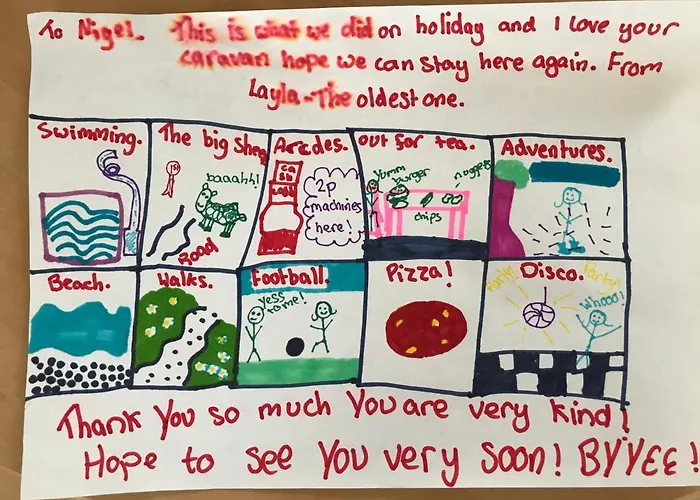 To Nigel. This is what we did on holiday and I love your
caravan hope we can stay here again. From
Layla - The oldest one.
Swimming.
The big sheep
baaahh!
Road
Arcdes.
2p
machines
here!
out for tea.
Yumm
burger
nuggets
chips
Adventures.
Beach.
Walks.
Football.
Yess
to me!
Pizza!
Disco.
Party!
Party!
Whooo!
Thank You so much You are very kind!
Hope to see You very soon! BYYEE!